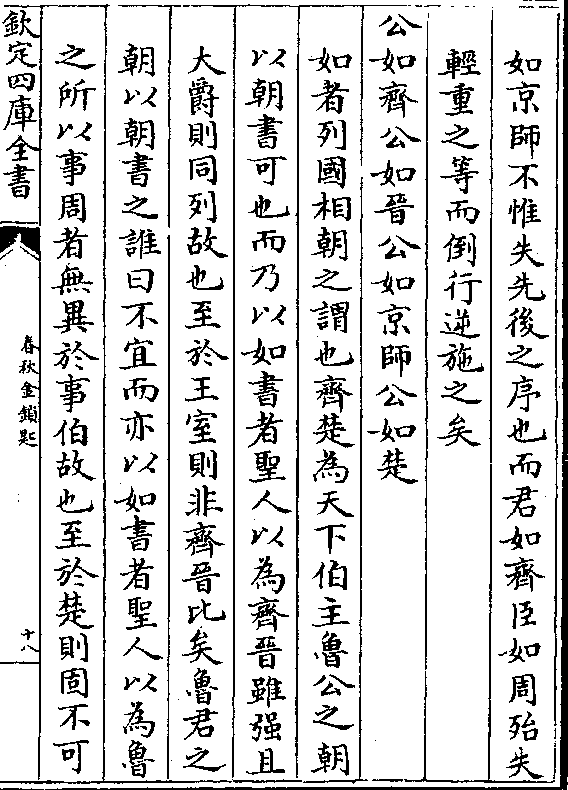 如京師不惟失先後之序也而君如齊臣如周殆失
輕重之等而倒行逆施之矣
公如齊公如晉公如京師公如楚
如者列國相朝之謂也齊楚為天下伯主魯公之朝
以朝書可也而乃以如書者聖人以為齊晉雖强且
大爵則同列故也至於王室則非齊晉比矣魯君之
朝以朝書之誰曰不宜而亦以如書者聖人以為魯
之所以事周者無異於事伯故也至於楚則固不可
欽定四庫全書
春秋金鎖匙
十八